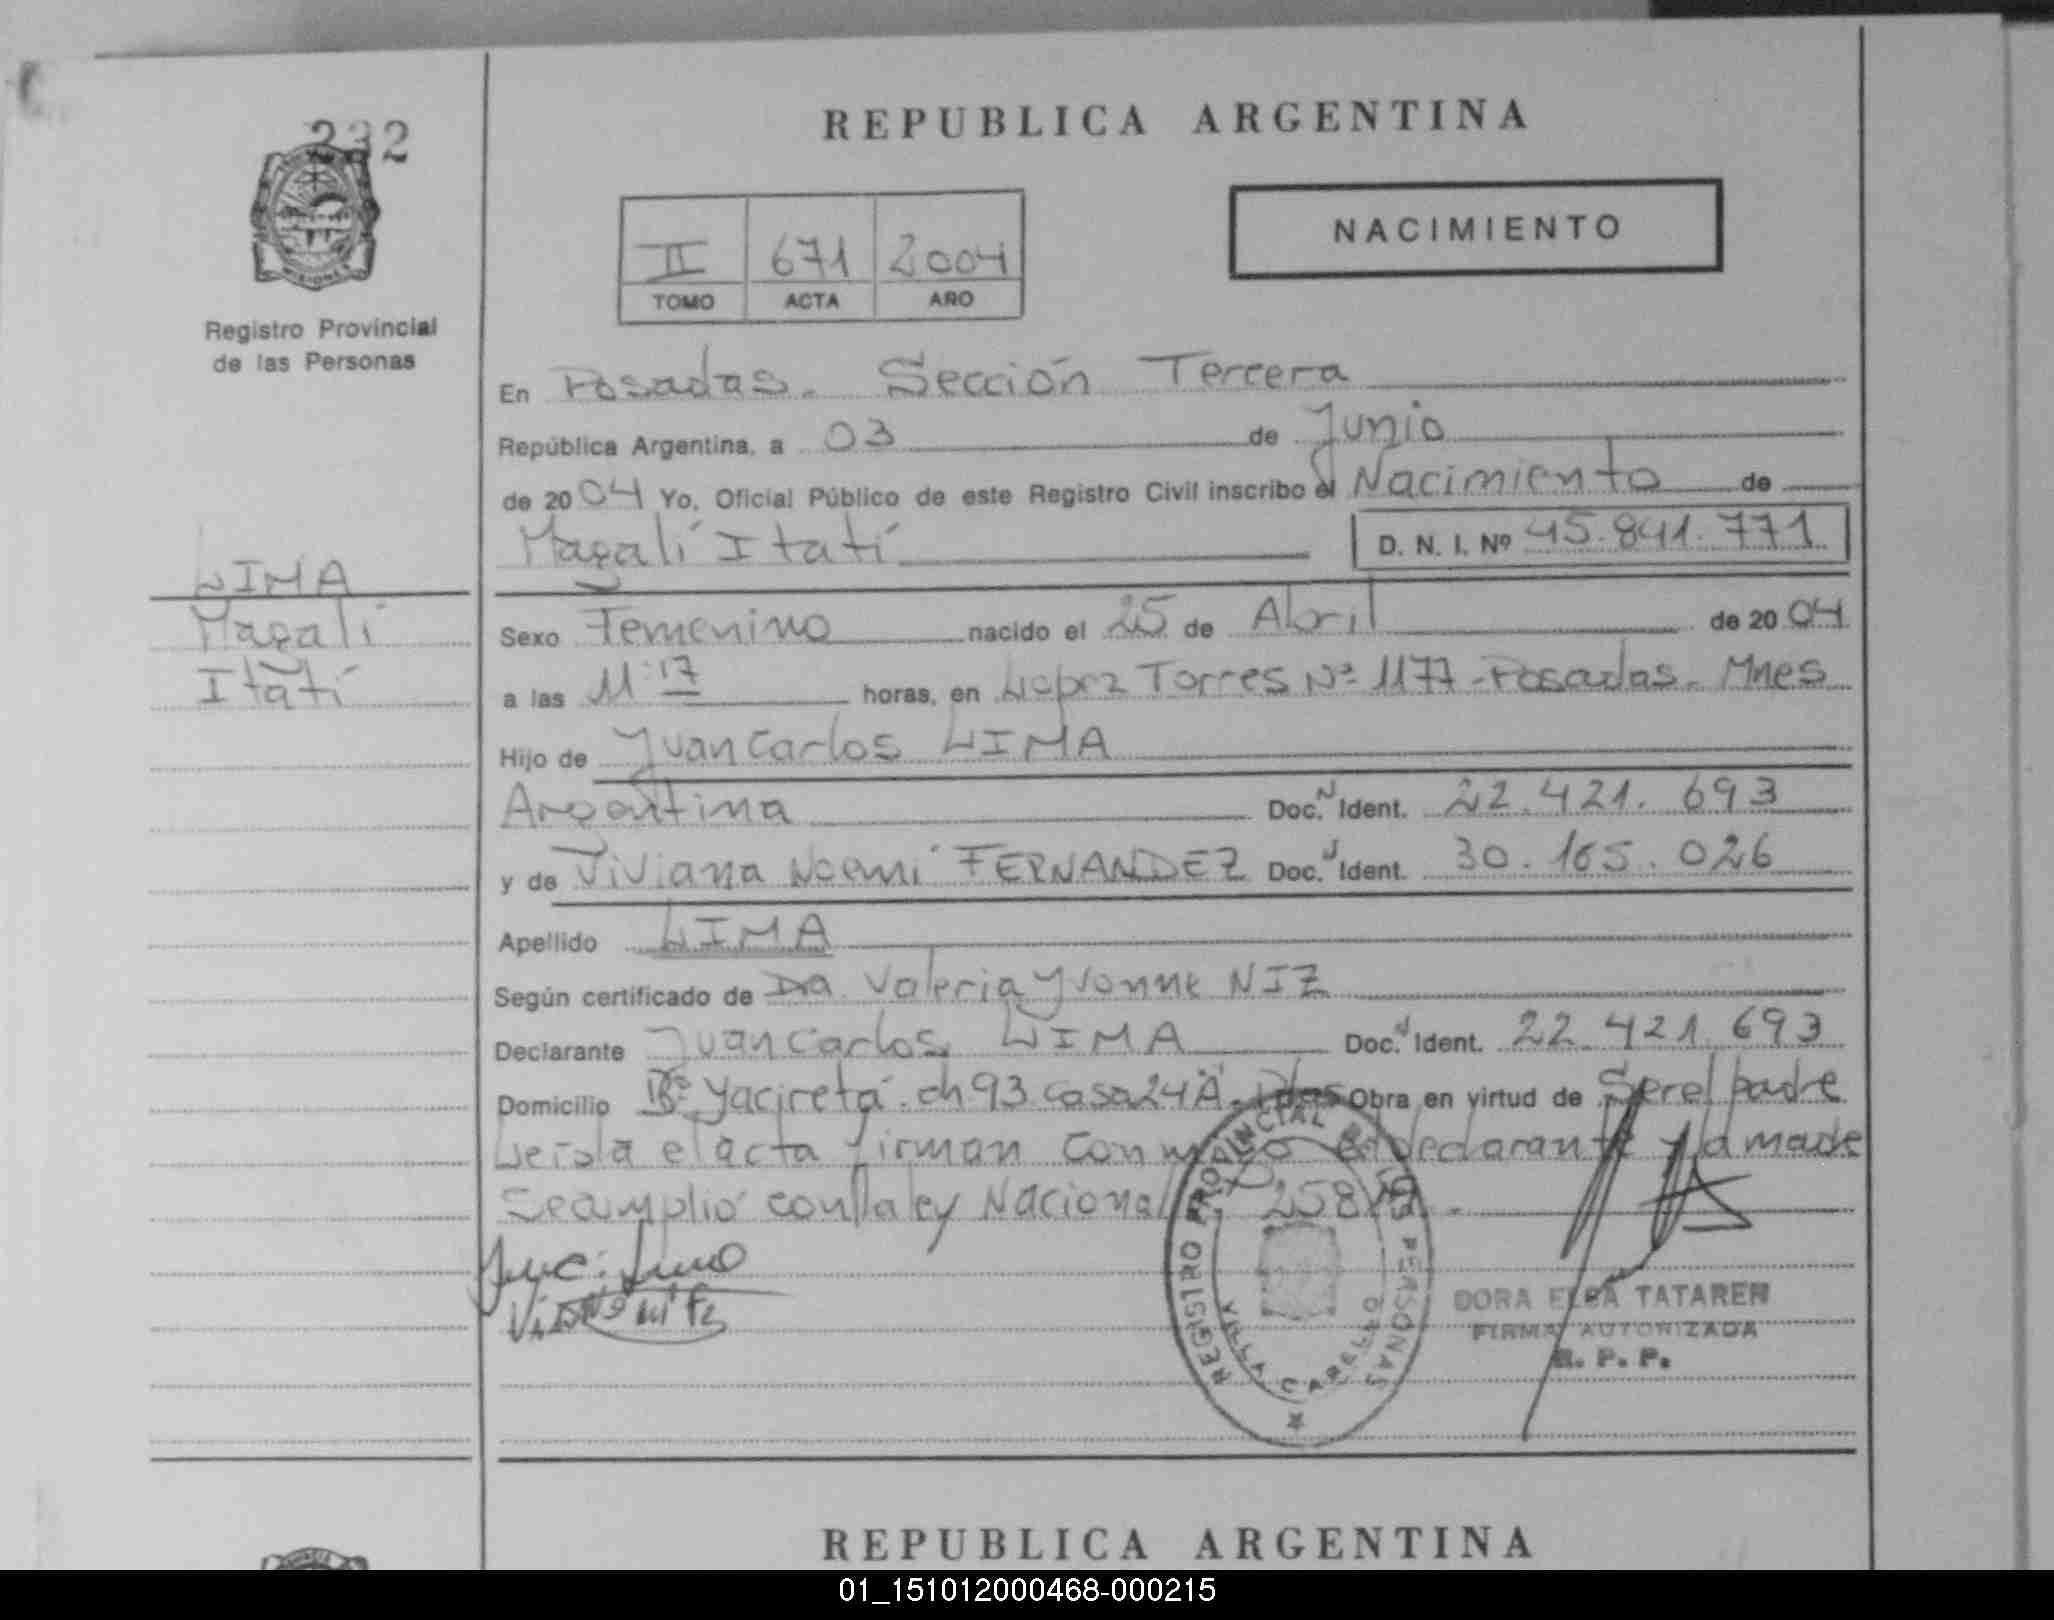 232
REPUBLICA ARGENTINA
NACIMIENTO
II 671 2004
TOMO ACTA AÑO
MISIONES
Registro Provincial
de las Personas
En Posadas. Sección Tercera
República Argentina, a 03 de Junio
de 2004 Yo, Oficial Público de este Registro Civil inscribo el Nacimiento de
Magalí Itatí D. N. I. Nº 45.841.771
LIMA
Magalí
Itatí
Sexo Femenino nacido el 25 de Abril de 2004
a las 11:17 horas, en Lopez Torres Nº 1177 - Posadas. Mnes
Hijo de Juan Carlos LIMA
Argentina Doc. N Ident. 22.421.693
y de Viviana Noemí FERNANDEZ Doc. Ident. 30.165.026
Apellido LIMA
Según certificado de Dra. Valeria Yvonne NIZ
Declarante Juan Carlos LIMA Doc. Ident. 22.421.693
Domicilio Bº Yacireta. ch 93 casa 24 "A". Pdas Obra en virtud de Ser el padre
Leída el acta firman conmigo el declarante y la madre
Se cumplió con la ley Nacional
REGISTRO PROVINCIAL DE LAS PERSONAS
VILLA CABELLO
DORA ELBA TATAREN
FIRMA AUTORIZADA
R. P. P.
REPUBLICA ARGENTINA
01_151012000468-000215